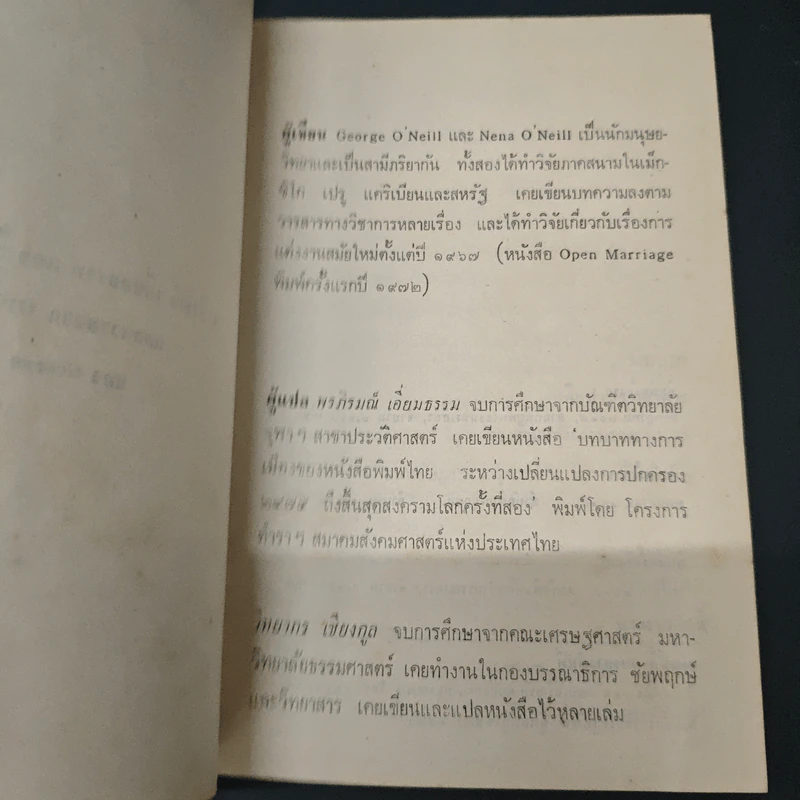 ผู้เขียน George O'Neill และ Nena O'Neill เป็นนักมนุษย-
วิทยาและเป็นสามีภริยากัน ทั้งสองได้ทำวิจัยภาคสนามในเม็ก-
ซิโก เปรู แคริเบียนและสหรัฐ เคยเขียนบทความลงตาม
วารสารทางวิชาการหลายเรื่อง และได้ทำวิจัยเกี่ยวกับเรื่องการ
แต่งงานสมัยใหม่ตั้งแต่ปี ๑๙๖๗ (หนังสือ Open Marriage
พิมพ์ครั้งแรกปี ๑๙๗๒)
ผู้แปล พรภิรมณ์ เอี่ยมธรรม จบการศึกษาจากบัณฑิตวิทยาลัย
จุฬาฯ สาขาประวัติศาสตร์ เคยเขียนหนังสือ 'บทบาททางการ
เมืองของหนังสือพิมพ์ไทย ระหว่างเปลี่ยนแปลงการปกครอง
๒๔๗๕ ถึงสิ้นสุดสงครามโลกครั้งที่สอง' พิมพ์โดย โครงการ
ตำราฯ สมาคมสังคมศาสตร์แห่งประเทศไทย
วิทยากร เชียงกูล จบการศึกษาจากคณะเศรษฐศาสตร์ มหา-
วิทยาลัยธรรมศาสตร์ เคยทำงานในกองบรรณาธิการ ชัยพฤกษ์
และวิทยาสาร เคยเขียนและแปลหนังสือไว้หลายเล่ม